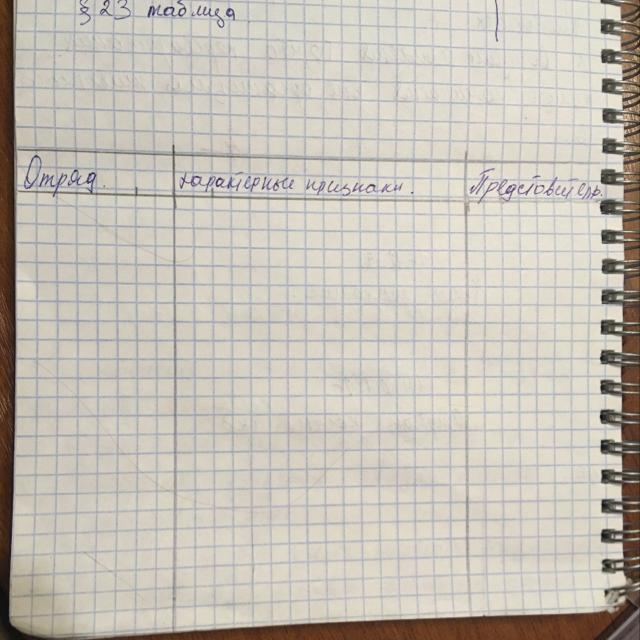 § 23 таблица
Отряд. характерные признаки. Представитель.